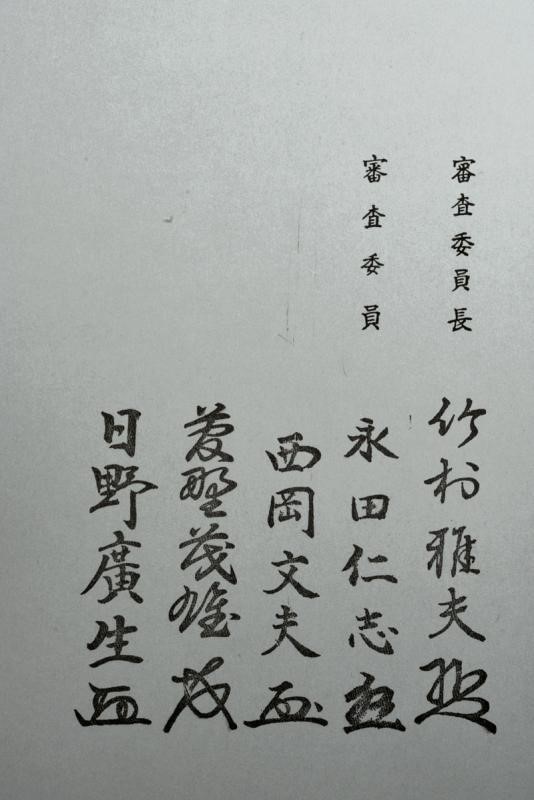 審査委員長
竹村雅夫
審査委員
永田仁志
西岡文夫
茂雄
日野廣生